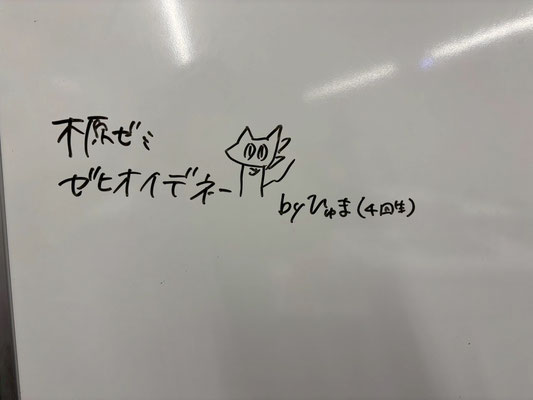 木原ゼミ
ゼヒオイデネー
byひゅま(4回生)